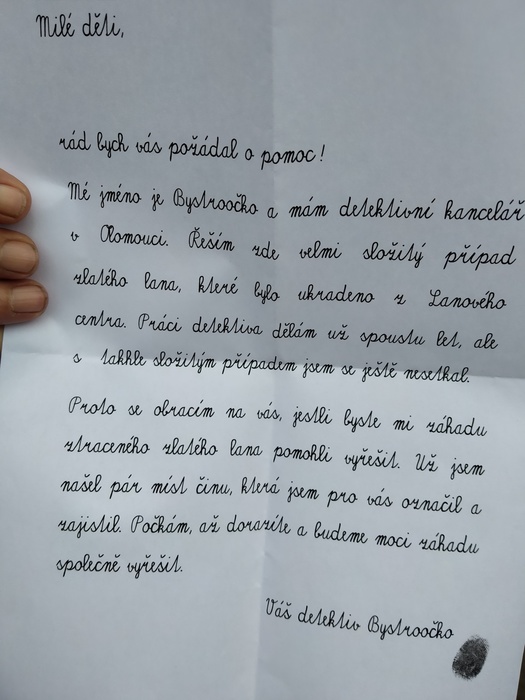 Milé děti,
rád bych vás požádal o pomoc!
Mé jméno je Bystroočko a mám detektivní kancelář
v Olomouci. Řeším zde velmi složitý případ
zlatého lana, které bylo ukradeno z Lanového
centra. Práci detektiva dělám už spoustu let, ale
s takhle složitým případem jsem se ještě nesetkal.
Proto se obracím na vás, jestli byste mi záhadu
ztraceného zlatého lana pomohli vyřešit. Už jsem
našel pár míst činu, která jsem pro vás označil a
zajistil. Počkám, až dorazíte a budeme moci záhadu
společně vyřešit.
Váš detektiv Bystroočko